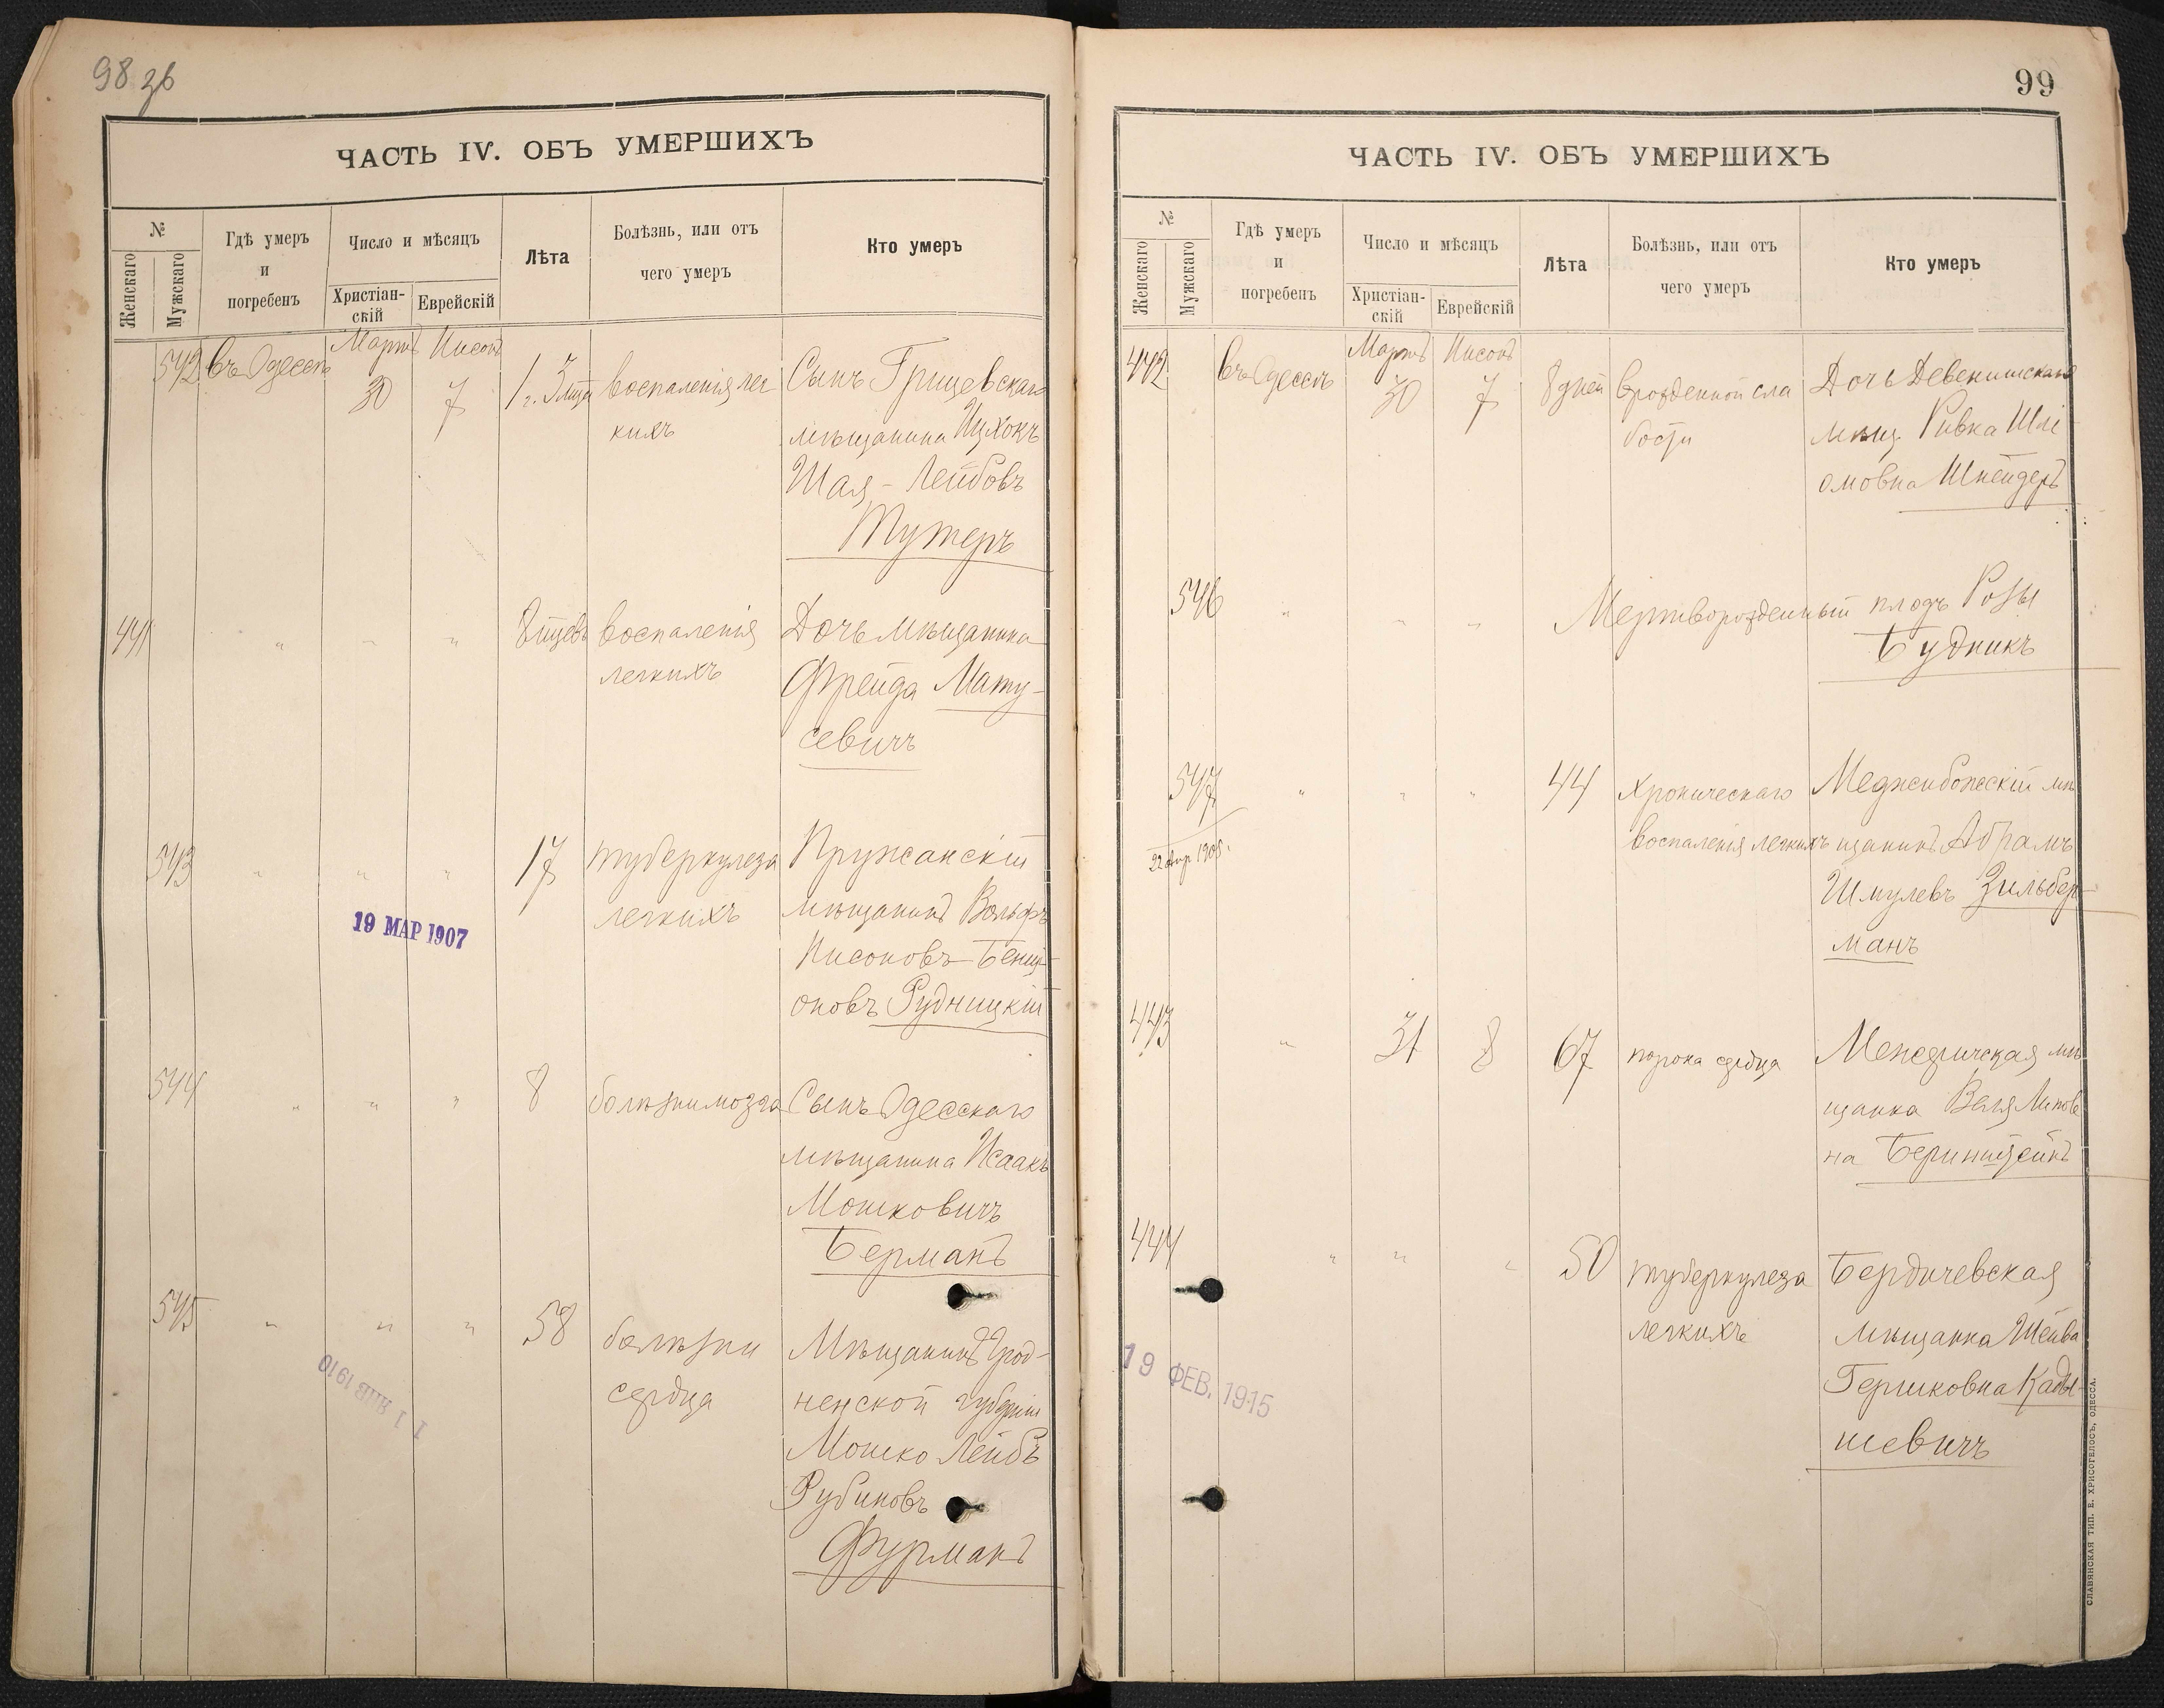 98 зв
ЧАСТЬ IV. ОБЪ УМЕРШИХЪ
№
Женскаго
Мужскаго
Гдѣ умеръ
и
погребенъ
Число и мѣсяцъ
Христіан-
скій
Еврейскій
Лѣта
Болѣзнь, или отъ
чего умеръ
Кто умеръ
542 въ Одессѣ Мартъ 30 Нисонъ 7 1 г. 3 мца воспаленія лег
кихъ
Сынъ Грицевскаго
мѣщанина Ицхокъ
Шая-Лейбовъ
Тутеръ
441 " " " 8 мцевъ воспаленія
легкихъ
Дочь мѣщанина
Фрейда Мату-
севичъ
543 " " " 17 туберкулеза
легкихъ
Пружанскій
мѣщанинъ Вольфъ
Нисоновъ-Бенці-
оновъ Рудницкій
19 МАР 1907
544 " " " 8 болѣзни мозга
Сынъ Одесскаго
мѣщанина Исаакъ
Мошковичъ
Берманъ
545 " " " 58 болѣзни
сердца
Мѣщанинъ Грод-
ненской губерніи
Мошко Лейбъ
Рубиновъ
Фурманъ
11 ЯНВ 1910
99
ЧАСТЬ IV. ОБЪ УМЕРШИХЪ
№
Женскаго
Мужскаго
Гдѣ умеръ
и
погребенъ
Число и мѣсяцъ
Христіан-
скій
Еврейскій
Лѣта
Болѣзнь, или отъ
чего умеръ
Кто умеръ
442 въ Одессѣ Мартъ 30 Нисонъ 7 8 дней врожденной сла
бости
Дочь Девенишскаго
мѣщ. Ривка Шлі
омовна Шнейдеръ
546 " " " Мертворожденный плодъ Розы
Будникъ
547 " " " 44 хроническаго
воспаленія легкихъ
22 апр 1905.
Меджибожскій мѣ
щанинъ Абрамъ
Шмулевъ Зильбер-
манъ
443 " 31 8 67 порока сердца
мѣ
щанка
на Беринштейнъ
444 " " " 50 туберкулеза
легкихъ
Бердичевская
мѣщанка Шейва
Гершковна Кады-
шевичъ
19 ФЕВ. 1915
СЛАВЯНСКАЯ ТИП. Е. ХРИСОГЕЛОСЪ, ОДЕССА.